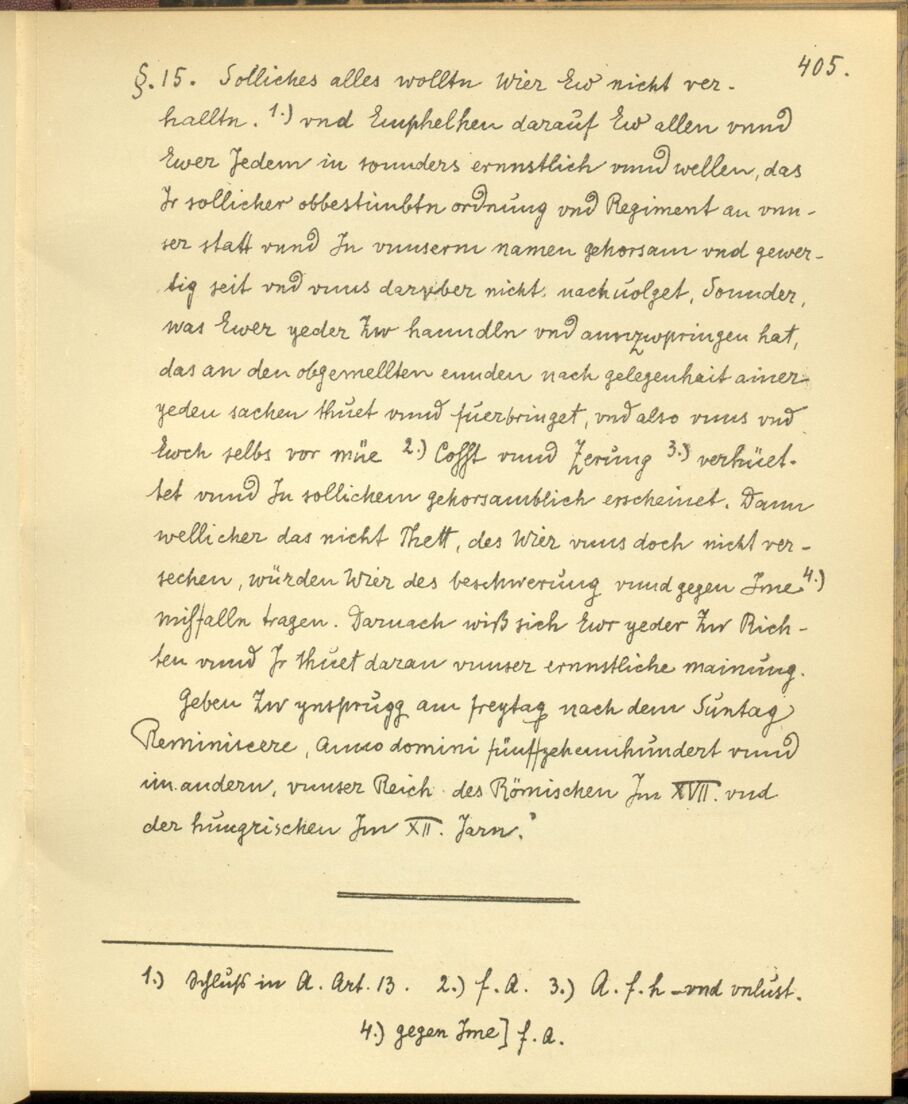 405.
§. 15. Solliches alles wolltn Wier Ew nicht ver-
halltn. 1.) vnd Emphelhen darauf Ew allen vnnd
Ewer Jedem in sonnders ernnstlich vnnd wellen, das
Jr sollicher obbestimbtn ordnung vnd Regiment an vnn-
ser statt vnnd In vnnserm namen gehorsam vnd gewer-
tig seit vnd vnns darvber nicht nachuolget, Sonnder,
was Ewer yeder Zw hanndln vnd annzwpringen hat,
das an den obgemellten ennden nach gelegenhait ainer
yeden sachen thuet vnnd fuerbringet, vnd also vnns vnd
Ewch selbs vor müe 2.) Cosst vnnd Zerung 3.) verhüet-
tet vnnd In sollichem gehorsamblich erscheinet. Dann
wellicher das nicht Thett, des Wier vnns doch nicht ver-
sechen, würden Wier des beschwerung vnnd gegen Jme 4.)
missfalln tragen. Darnach wiß sich Ewr yeder Zw Rich-
ten vnnd Jr thuet daran vnnser ernnstliche mainung.
Geben Zw ynsprugg am freytag nach dem Suntag
Reminiscere, Anno domini fünffzehennhundert vnnd
im andern, vnnser Reich des Römischen Im XVII. vnd
der hungrischen Im XII. Jarn.
1.) Schluß in A. Art. 13. 2.) f. A. 3.) A. f. h – vnd vnlust.
4.) gegen Jme] f. A.